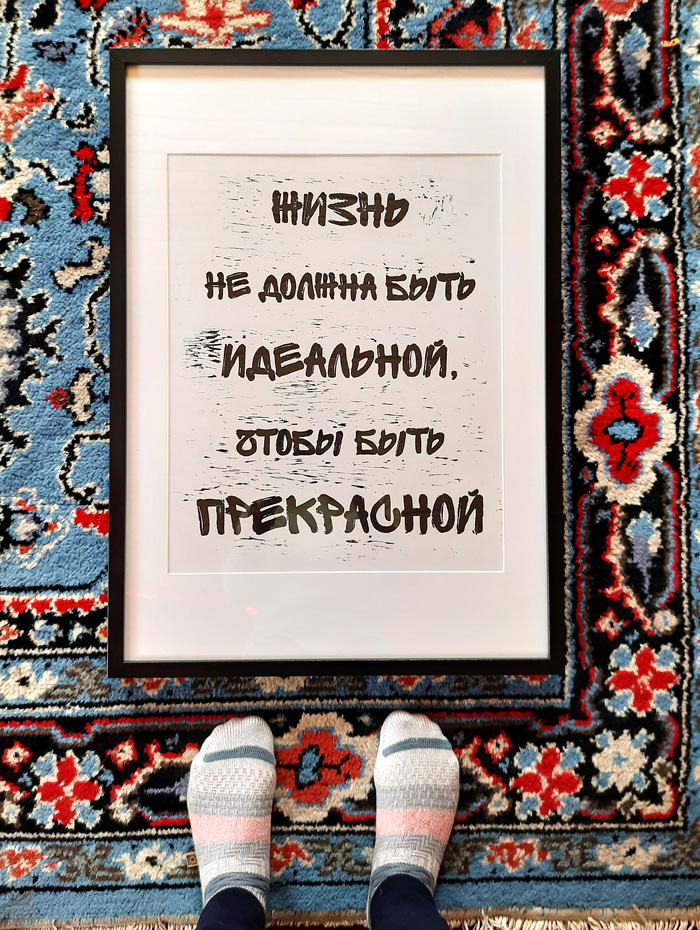 ЖИЗНЬ
НЕ ДОЛЖНА БЫТЬ
ИДЕАЛЬНОЙ,
ЧТОБЫ БЫТЬ
ПРЕКРАСНОЙ